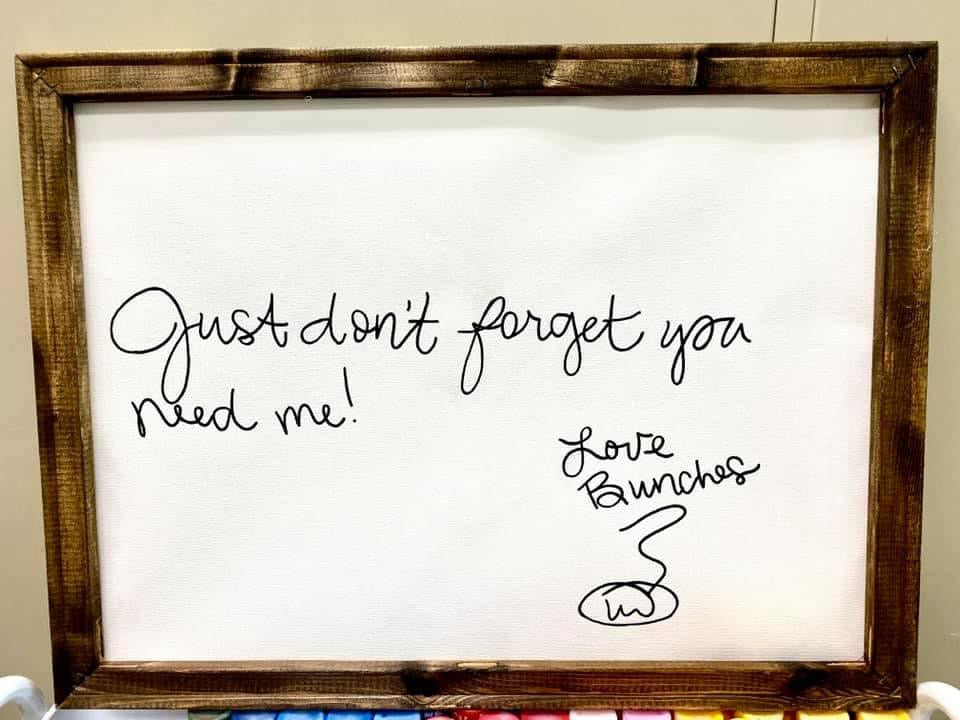 Just don't forget you
need me!
Love
Bunches